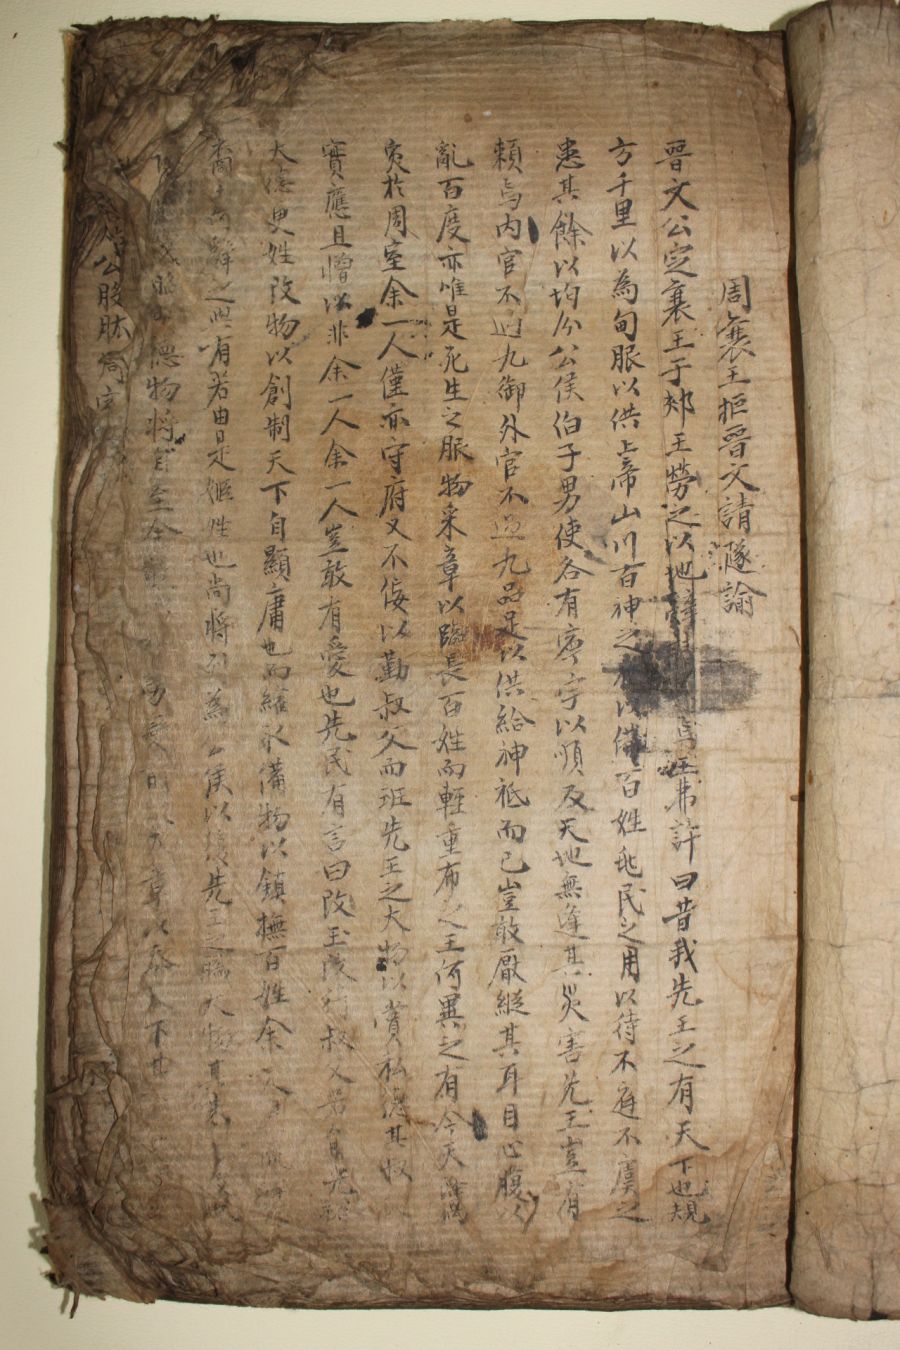 周襄王拒晉文請隧諭
晉文公定襄王于郟王勞之以地辭 焉王弗許曰昔我先王之有天下也規
方千里以為甸服以供上帝山川百神之 以備百姓兆民之用以待不庭不虞之
患其餘以均分公侯伯子男使各有寧宇以順及天地無逢其災害先王豈有
賴焉內官不過九御外官不過九品足以供給神祗而已豈敢厭縱其耳目心腹以
亂百度亦唯是死生之服物采章以臨長百姓而輕重布之王何異之有今天降禍
灾於周室余一人僅亦守府又不侫以勤叔父而班先王之大物以賞私德其叔
實應且憎以非余一人余一人豈敢有愛也先民有言曰改玉改行叔父若能光裕
大德更姓改物以創制天下自顯庸也而縮取備物以鎮撫百姓余一人
裔土何辭之與有若由是姬姓也尚將列為公侯以復先王之職大物其未可改
昭 德物將自至余 大章以忝天下其
公股肱